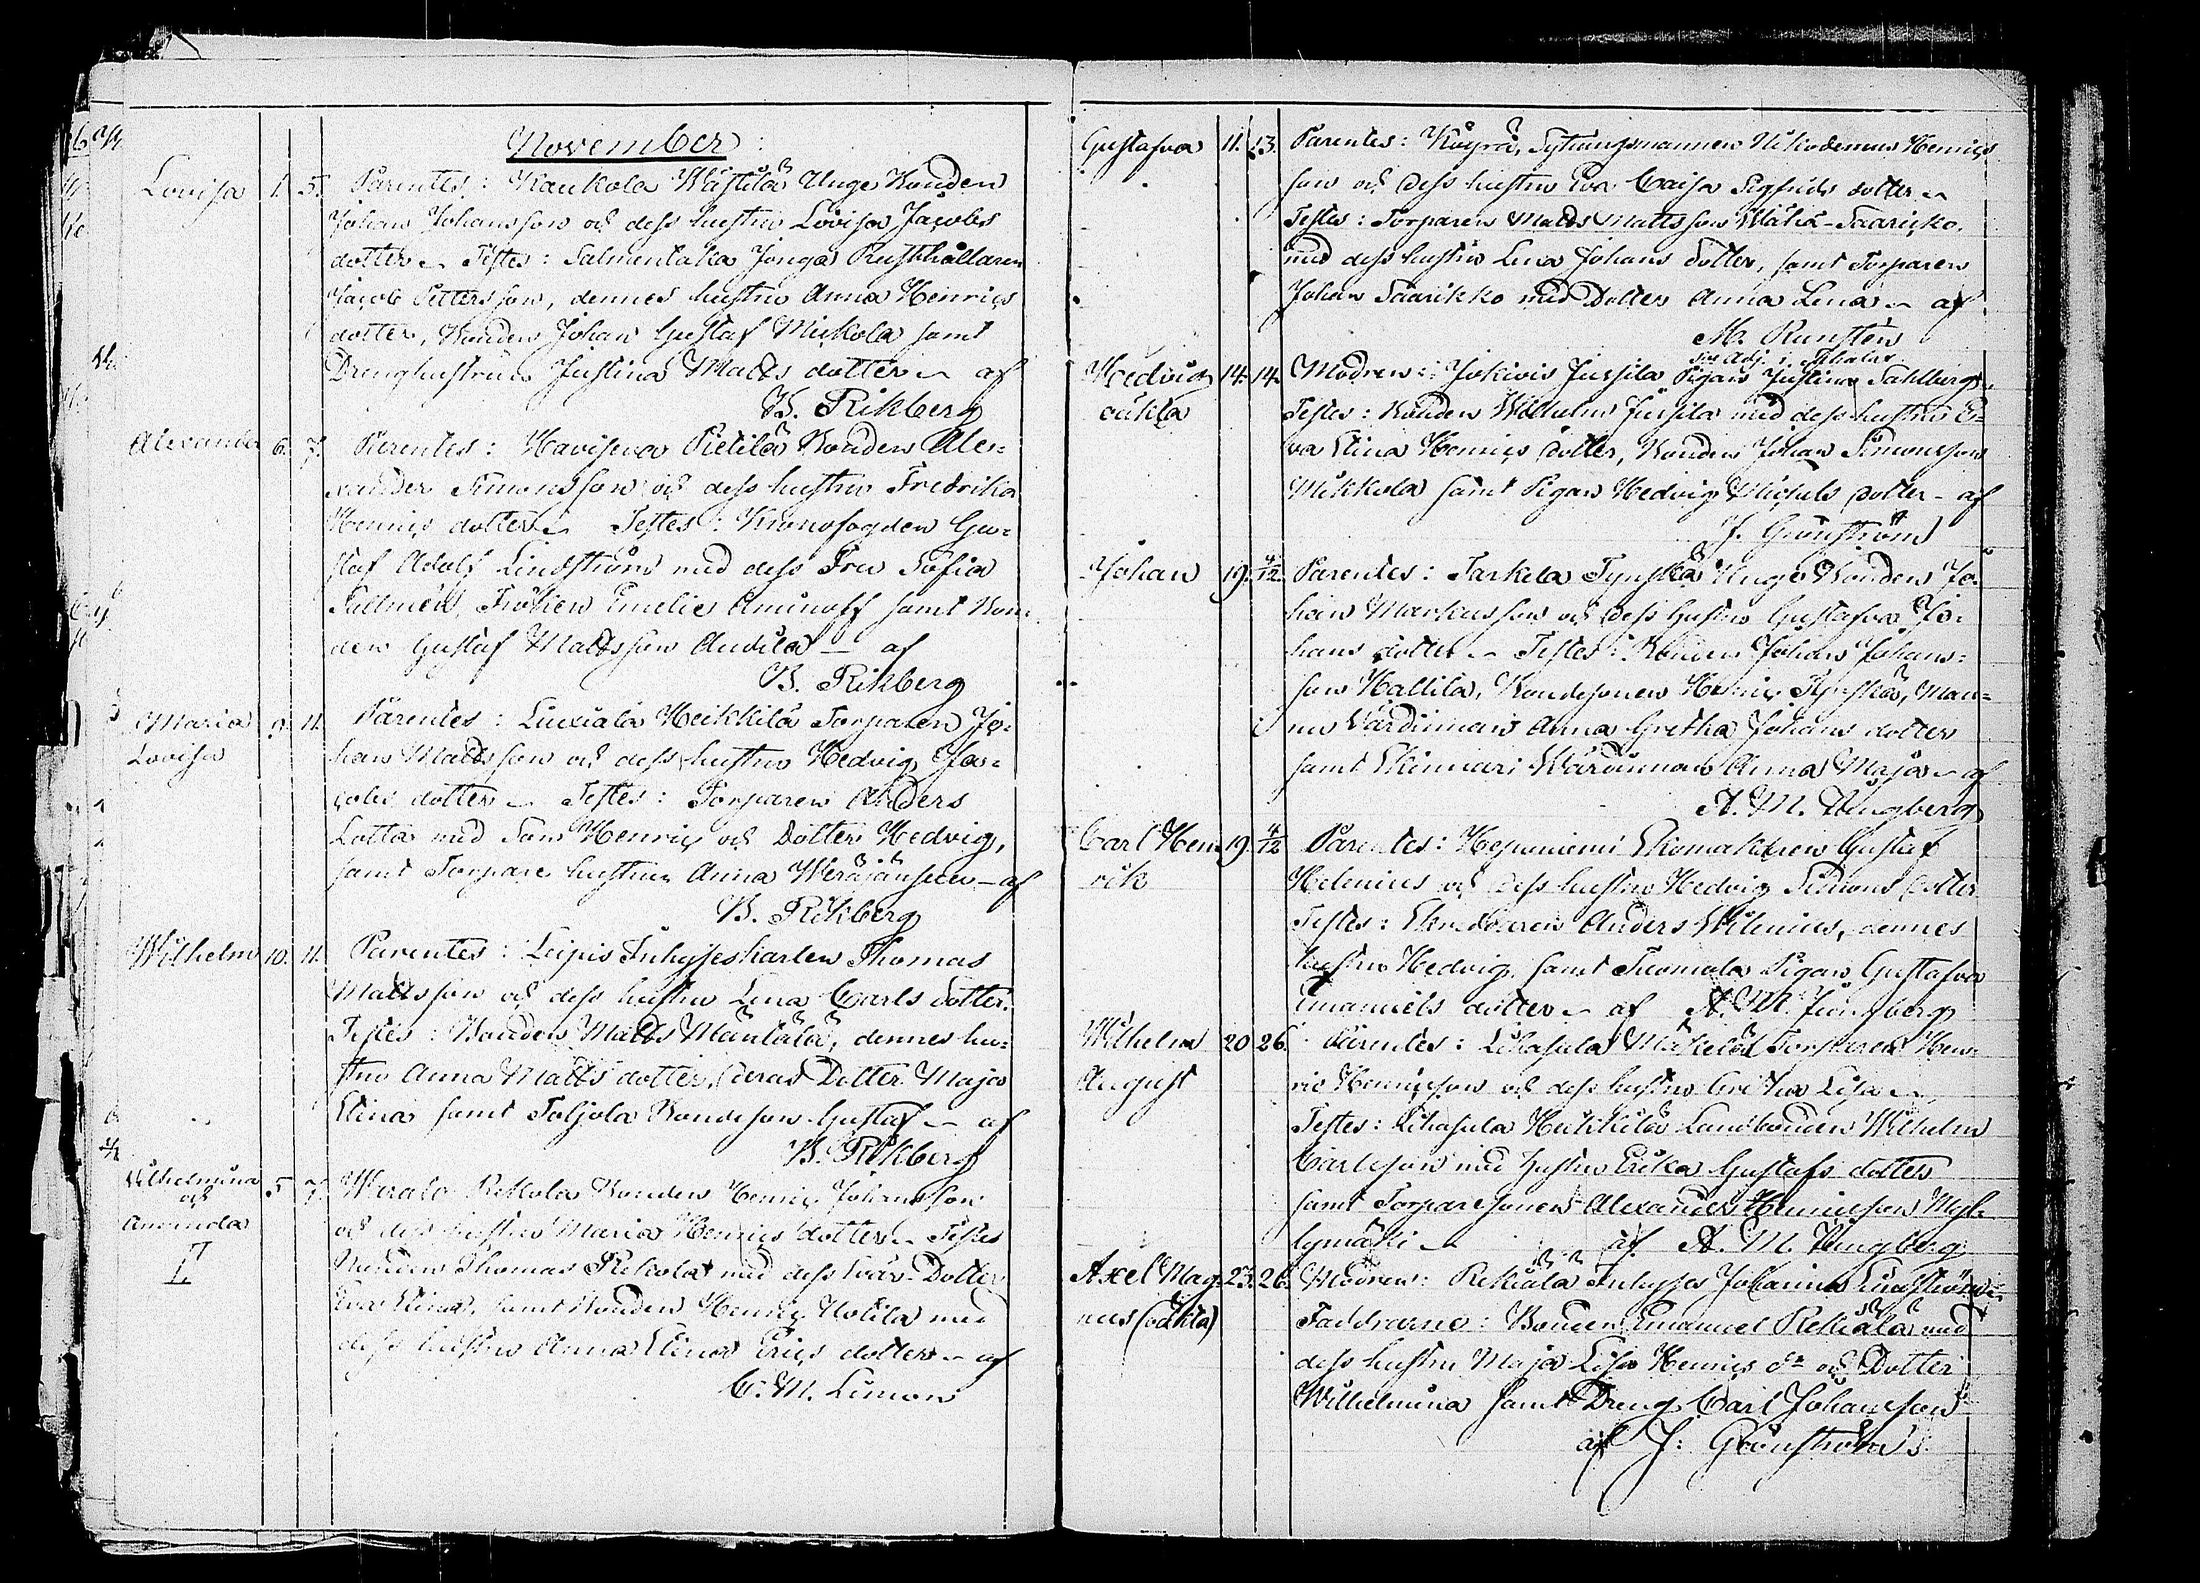 November:
Lovisa 1. 5. Parentes: Kaukola Wästilä Unge Bonden
Johan Johansson och dess hustru Lovisa Jacobs
dotter. Testes: Salmentaka Jonga Rusthållaren
Jacob Pettersson, dennes hustru Anna Henrics
dotter, Bonden Johan Gustaf Mickola samt
Drenghustrun Justina Matts dotter af
B. Rikberg
Alexander 6. 7. Parentes: Kavisena Pietilä Bonden Alex=
xander Simonsson och dess hustru Fredrika
Henrics dotter. Testes: Kronofogden Gu=
staf Adolf Lindström med dess Fru Sofia
Sallmén, Fröken Emelie Aminoff samt Bon=
den Gustaf Mattsson Andila af
B. Rikberg
Maria 9. 11. Parentes: Liuxiala Heikkilä Torparen Jo=
Lovisa
han Mattsson och dess hustru Hedvig Ja=
cobs dotter. Testes: Torparen Anders
Lotta med Son Henric och Dotter Hedvig,
samt Torpare hustrun Anna af
B. Rikberg
Wilhelm 10. 11. Parentes: Leipis Inhyseskarlen Thomas
Mattsson och dess hustru Lena Carls dotter.
Testes: Bonden Matts Mäntälä, dennes hu=
stru Anna Matts dotter, deras Dotter Maja
Stina samt Toljola Bondeson Gustaf af
B. Rikberg
Wilhelmina 5. 7. Rekola Bonden Henric Johansson
och
Amanda
och dess hustru Maria Henrics dotter. Testes
Bonden Thomas Rekola med dess Svär Dotter
Eva Stina, samt Bonden Henric Uotila med
dess hustru Anna Stina Erics dotter af
C. M. Limon
Gustafva 11. 13. Parentes: Köyrä, Sytningsmannen Nikodemus Henrics
son och dess hustru Eva Caisa Sigfrids dotter
Testes: Torparen Matts Mattsson Wähä-Saaricko,
med dess hustru Lena Johans dotter, samt Torparen
Johan Saarikko med Dotter Anna Lena af
M. Runsten
Hedvig 14. 14. Modren: Jokivis Jussila Pigan Justina Sahlberg
oäkta
Testes: Bonden Wilhelm Jussila med dess hustru E=
va Stina Henrics dotter, Bonden Johan Simonsson
Mikkola samt Pigan Hedvig Michels dotter af
J. Grönström
Johan 19. 4/12. Parentes: Tarkela Unge Bonden Jo=
han Markusson och dess hustru Gustafva Jo=
hans dotter Testes: Bonden Johan Johans=
son Hallila, Bondesonen Henric Man=
nu Värdinnan Anna Gretha Johans dotter
samt Skinnari Wärdinnan Anna Maja af
A. M. Ljungberg
Carl Hen= 19. 4/12 Parentes: Heponiemi Skomakaren Gustaf
rik
Helenius och dess hustru Hedvig Simons dotter
Testes: Skräddaren Anders Wilenius, dennes
hustru Hedvig, samt Tuomola Pigan Gustafva
Emanuels dotter af A. M. Ljungberg
Wilhelm 20 26. Parentes: Lihasula Mäkelä Torparen Hen=
August
ric Henricsson och dess hustru Gretha Lisa
Testes: Lihasula Heikkilä Landbonden Wilhelm
Carlsson med hustru Erika Gustafs dotter
samt Torparesonen Alexander Henricsson Myl=
lymäki af A. M. Ljungberg
Axel Mag= 23. 26. Modren: Rekiälä Inhyses Johanna Lindström
nus (oäkta)
Faddrarne: Bonden Emanuel Rekiälä med
dess hustru Maja Lisa Henrics dr och Dotter
Wilhelmina samt Dreng Carl Johansson
af J: Grönström